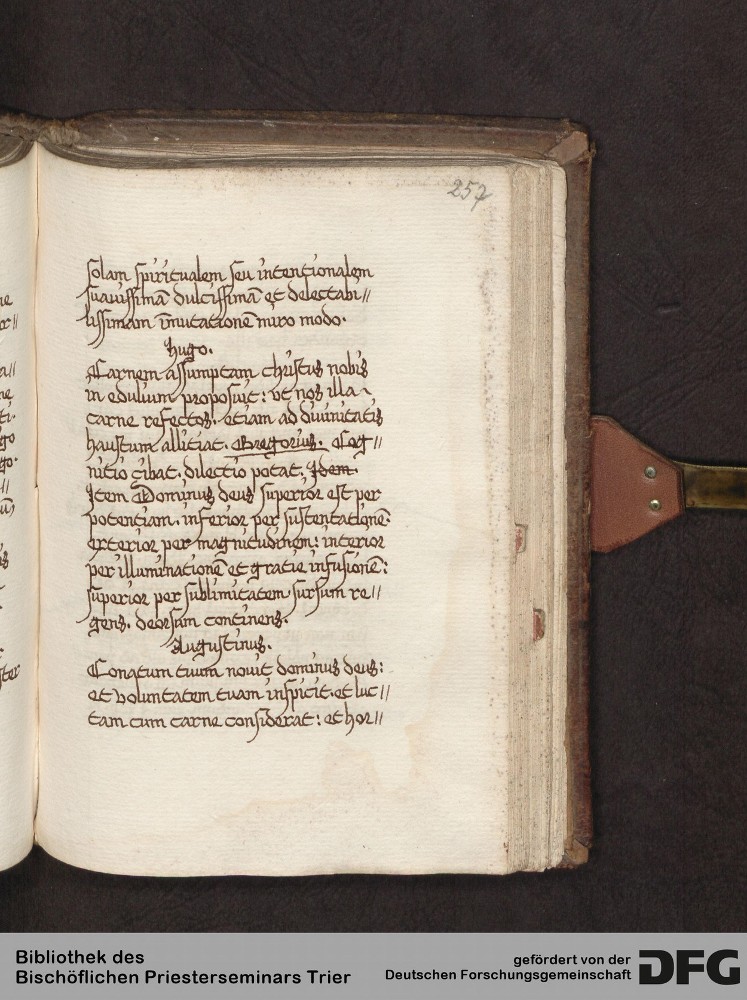 257
solam spiritualem seu intentionalem
suauissimā dulcissimā et delectabi//
lissimam īmutationē miro modo.
Hugo.
Carnem assumptam christus nobis
in edulium proposuit: vt nos illa
carne refectos. etiam ad diuinitatis
haustum alliciat. Gregorius. Cog//
nitio cibat. dilectio potat. Idem.
Item Dominus deus superior est per
potentiam. inferior per sustentationē.
exterior per magnitudinem: interior
per illuminationē et gratie infusionē:
superior per sublimitatem sursum re//
gens. deorsum continens.
Augustinus.
Conatum tuum nouit dominus deus:
et voluntatem tuam inspicit. et luc//
tam cum carne considerat: et hor//
Bibliothek des
Bischöflichen Priesterseminars Trier
gefördert von der
Deutschen Forschungsgemeinschaft
DFG